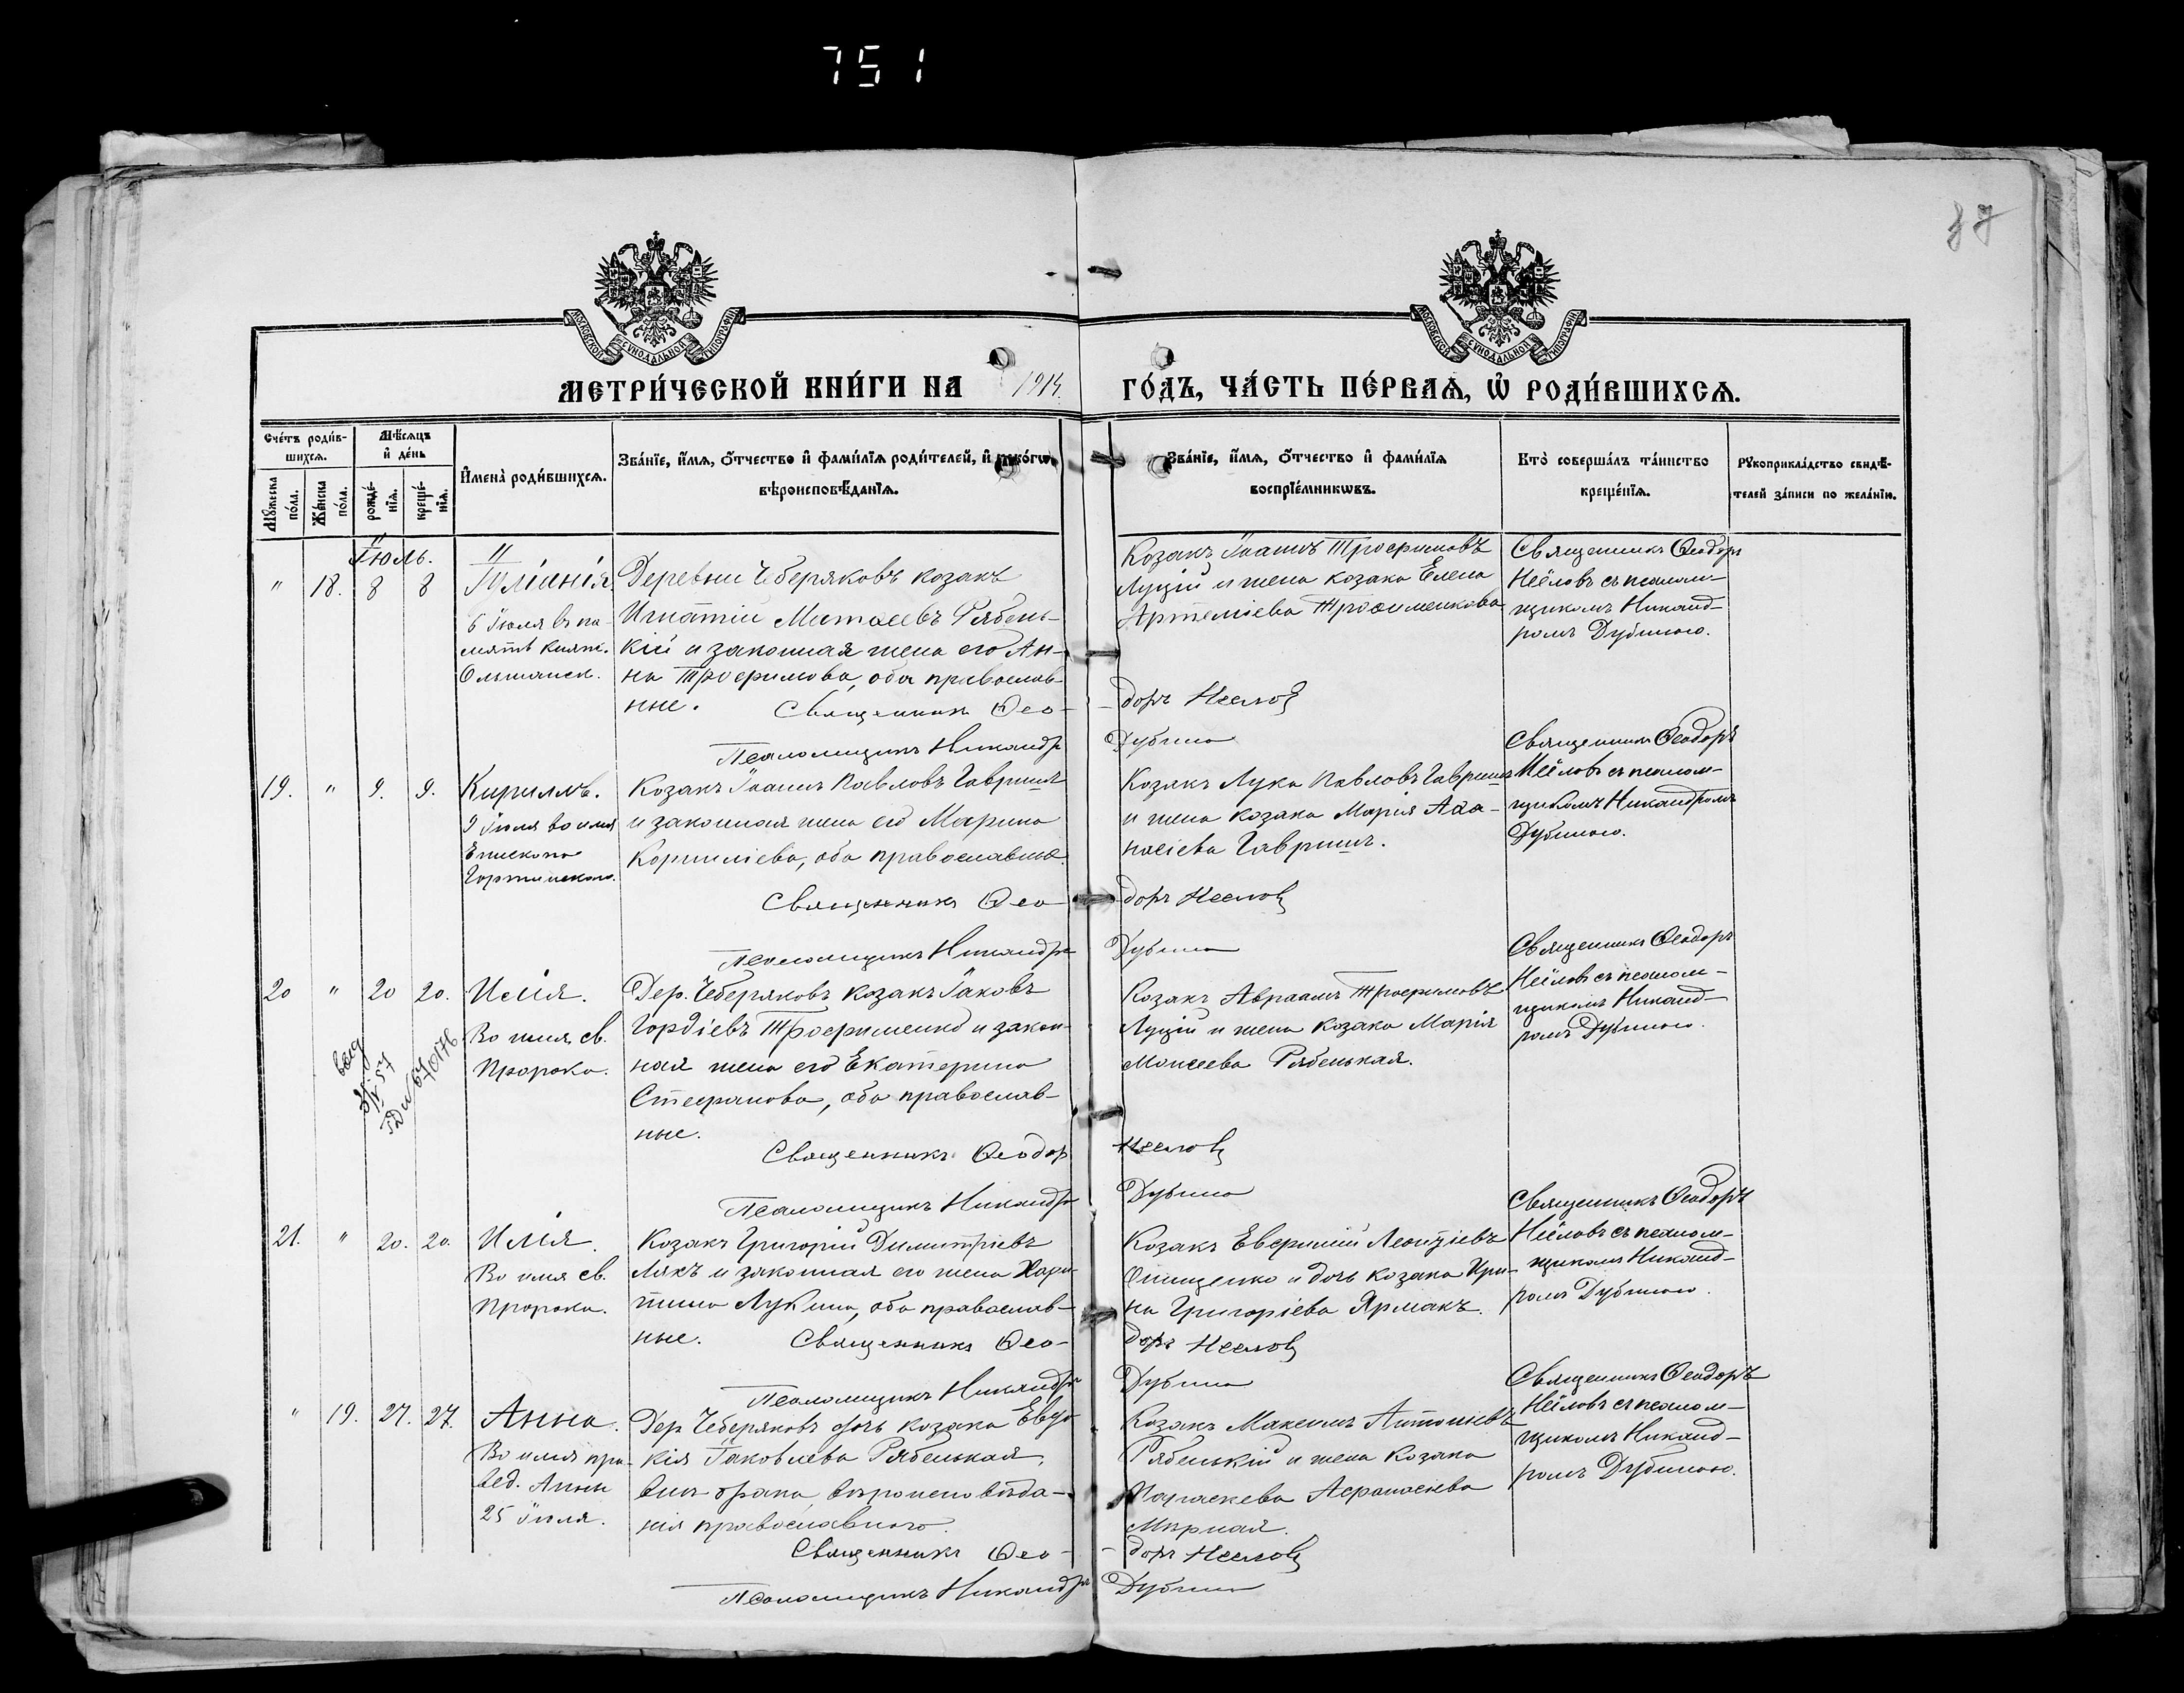 751
87
МОСКОВСКОЙ СѴНОДАЛЬНОЙ ТИПОГРАФІИ
МОСКОВСКОЙ СѴНОДАЛЬНОЙ ТИПОГРАФІИ
МЕТРИ́ЧЕСКОЙ КНИ́ГИ НА 1914. ГО́ДЪ, ЧА́СТЬ ПЕ́РВАѦ, Ѡ҆ РОДИ́ВШИХСѦ.
Сче́тъ роди́в-
шихсѧ.
Мꙋжеска по́ла.
Же́нска по́ла.
Мѣ́сѧцъ
и҆ де́нь
рожде́-
нїѧ.
креще́-
нїѧ.
И҆мена̀ роди́вшихсѧ.
Зва́нїе, и҆́мѧ, ѻ҆́тчество и҆ фами́лїѧ роди́телей, и҆ како́гѡ
вѣроисповѣ́данїѧ.
Зва́нїе, и҆́мѧ, ѻ҆́тчество и҆ фами́лїѧ
воспрїе́мникѡвъ.
Кто̀ соверша́лъ та́инство
креще́нїѧ.
Рꙋкоприкла́дство свидѣ́-
телей за́писи по жела́нїю.
Іюль.
" 18. 8 8
Іуліанія.
6 Іюля въ па-
мять княж.
Ольшанск.
Деревни Чеберяковъ козакъ
Игнатій Матѳеевъ Рябень-
кій и законная жена его Ан-
на Трофимова, оба православ-
ные.
Священникъ Ѳео-
доръ Неелов
Псаломщикъ Никандръ
Дубина
Козакъ Іоаннъ Трофимовъ
Луцій и жена козака Елена
Артеміева Трофименкова
Священникъ Ѳеодоръ
Неёловъ съ псалом-
щикомъНиканд-
ромъ Дубиною.
19. " 9. 9.
Кириллъ.
9 Іюля во имя
Епископа
Гортинскаго.
Козакъ Іоаннъ Павловъ Гавришъ
и законная жена его Марина
Корниліева, оба православные.
Священникъ Ѳео-
доръ Неелов
Псаломщикъ Никандръ
Дубина
Козакъ Лука Павловъ Гавришъ
и жена козака Марія Аѳа-
насіева Гавришъ.
Священникъ Ѳеодоръ
Неёловъ съ псалом-
щикомъ Никандромъ
Дубиною.
20 " 20 20.
Илія.
Во имя св.
Пророка.
Дер. Чеберяковъ козакъ Іаковъ
Гордіевъ Трофименко и закон-
ная жена его Екатерина
Стефанова, оба православ-
ные.
Священникъ Ѳеодор
Неелов
Псаломщикъ Никандръ
Дубина
Козакъ Авраамъ Трофимовъ
Луцій и жена козака Марія
Моисеева Рябенькая.
Священникъ Ѳеодоръ
Неёловъ съ псалом-
щикомъ Никанд-
ромъ Дубиною.
21. " 20. 20.
Илія.
Во имя св.
Пророка.
Козакъ Григорій Димитріевъ
Лякъ и законная его жена Хари-
тина Лукина, оба православ-
ные.
Священникъ Ѳео-
доръ Неелов
Псаломщикъ Никандръ
Дубина
Козакъ Евфимій Леонтіевъ
Онищенко и дочь козака Ири-
на Григоріева Ярмакъ.
Священникъ Ѳеодоръ
Неёловъ съ псалом-
щикомъ Никанд-
ромъ Дубиною.
" 19. 27. 27.
Анна.
Во имя пра-
вед. Анны
25 Іюля.
Дер. Чеберяковъ дочь козака Евдо-
кія Іаковлева Рябенькая,
внѣ брака, вѣроисповѣда-
нія православнаго.
Священникъ Ѳео-
доръ Неелов
Псаломщикъ Никандръ
Дубина
Козакъ Максимъ Антоніевъ
Рябенькій и жена козака
Параскева Афанасіева
Мирная.
Священникъ Ѳеодоръ
Неёловъ съ псалом-
щикомъ Никанд-
ромъ Дубиною.